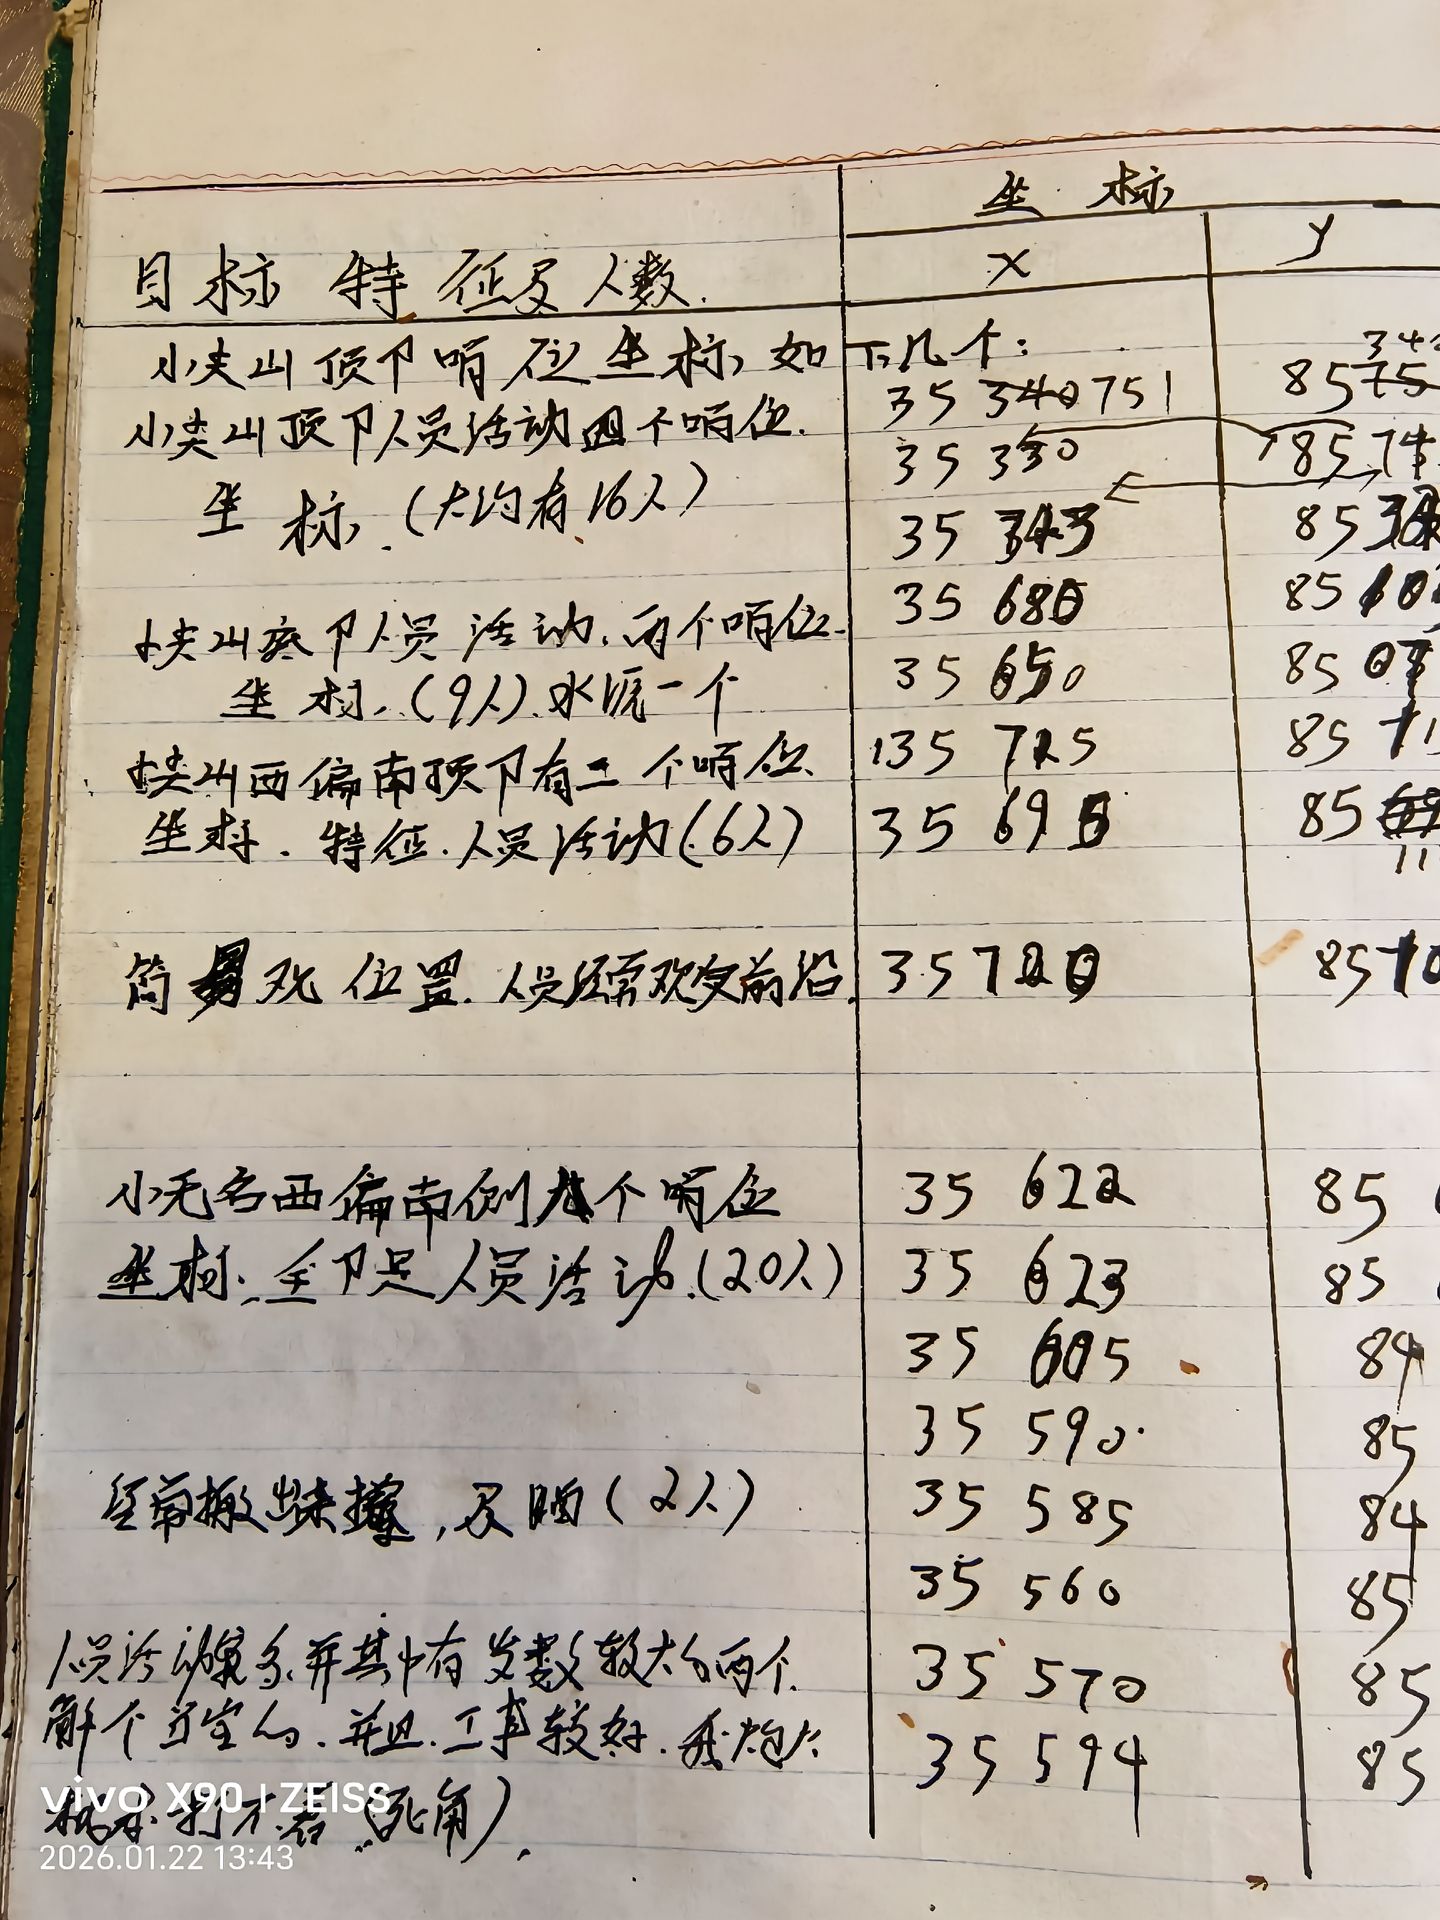 坐 标
目标 特 征及人数. X y
小尖山顶下哨位坐标, 如下几个: 34
35 340 751 8575
小尖山顶下人员活动四个哨位.
35 330 85 74
坐 标.(大约有16人)
35 343 85
小尖山底下人员 活动.两个哨位. 35 680 85
坐 标.(9人).水源一个 35 650 85 07
小尖山西偏南顶下有二个哨位. 35 725 85 71
坐标. 特征.人员活动(6人) 35 69 85
11
简易观 位置.人员经常观友前沿. 35 720 85 70
小无名西偏南侧 个哨位 35 622 85
坐标. 全下是人员活动.(20人) 35 623 85
35 605 84
35 590. 85
经常搬出来 , 及晒(2人) 35 585 84
35 560 85
人员活动 多.并其中有 发数较大的两个. 35 570 85
个 的.并且.工事较好.我炮火 35 594 85
根本打不着(死角).
vivo X90 | ZEISS
2026.01.22 13:43